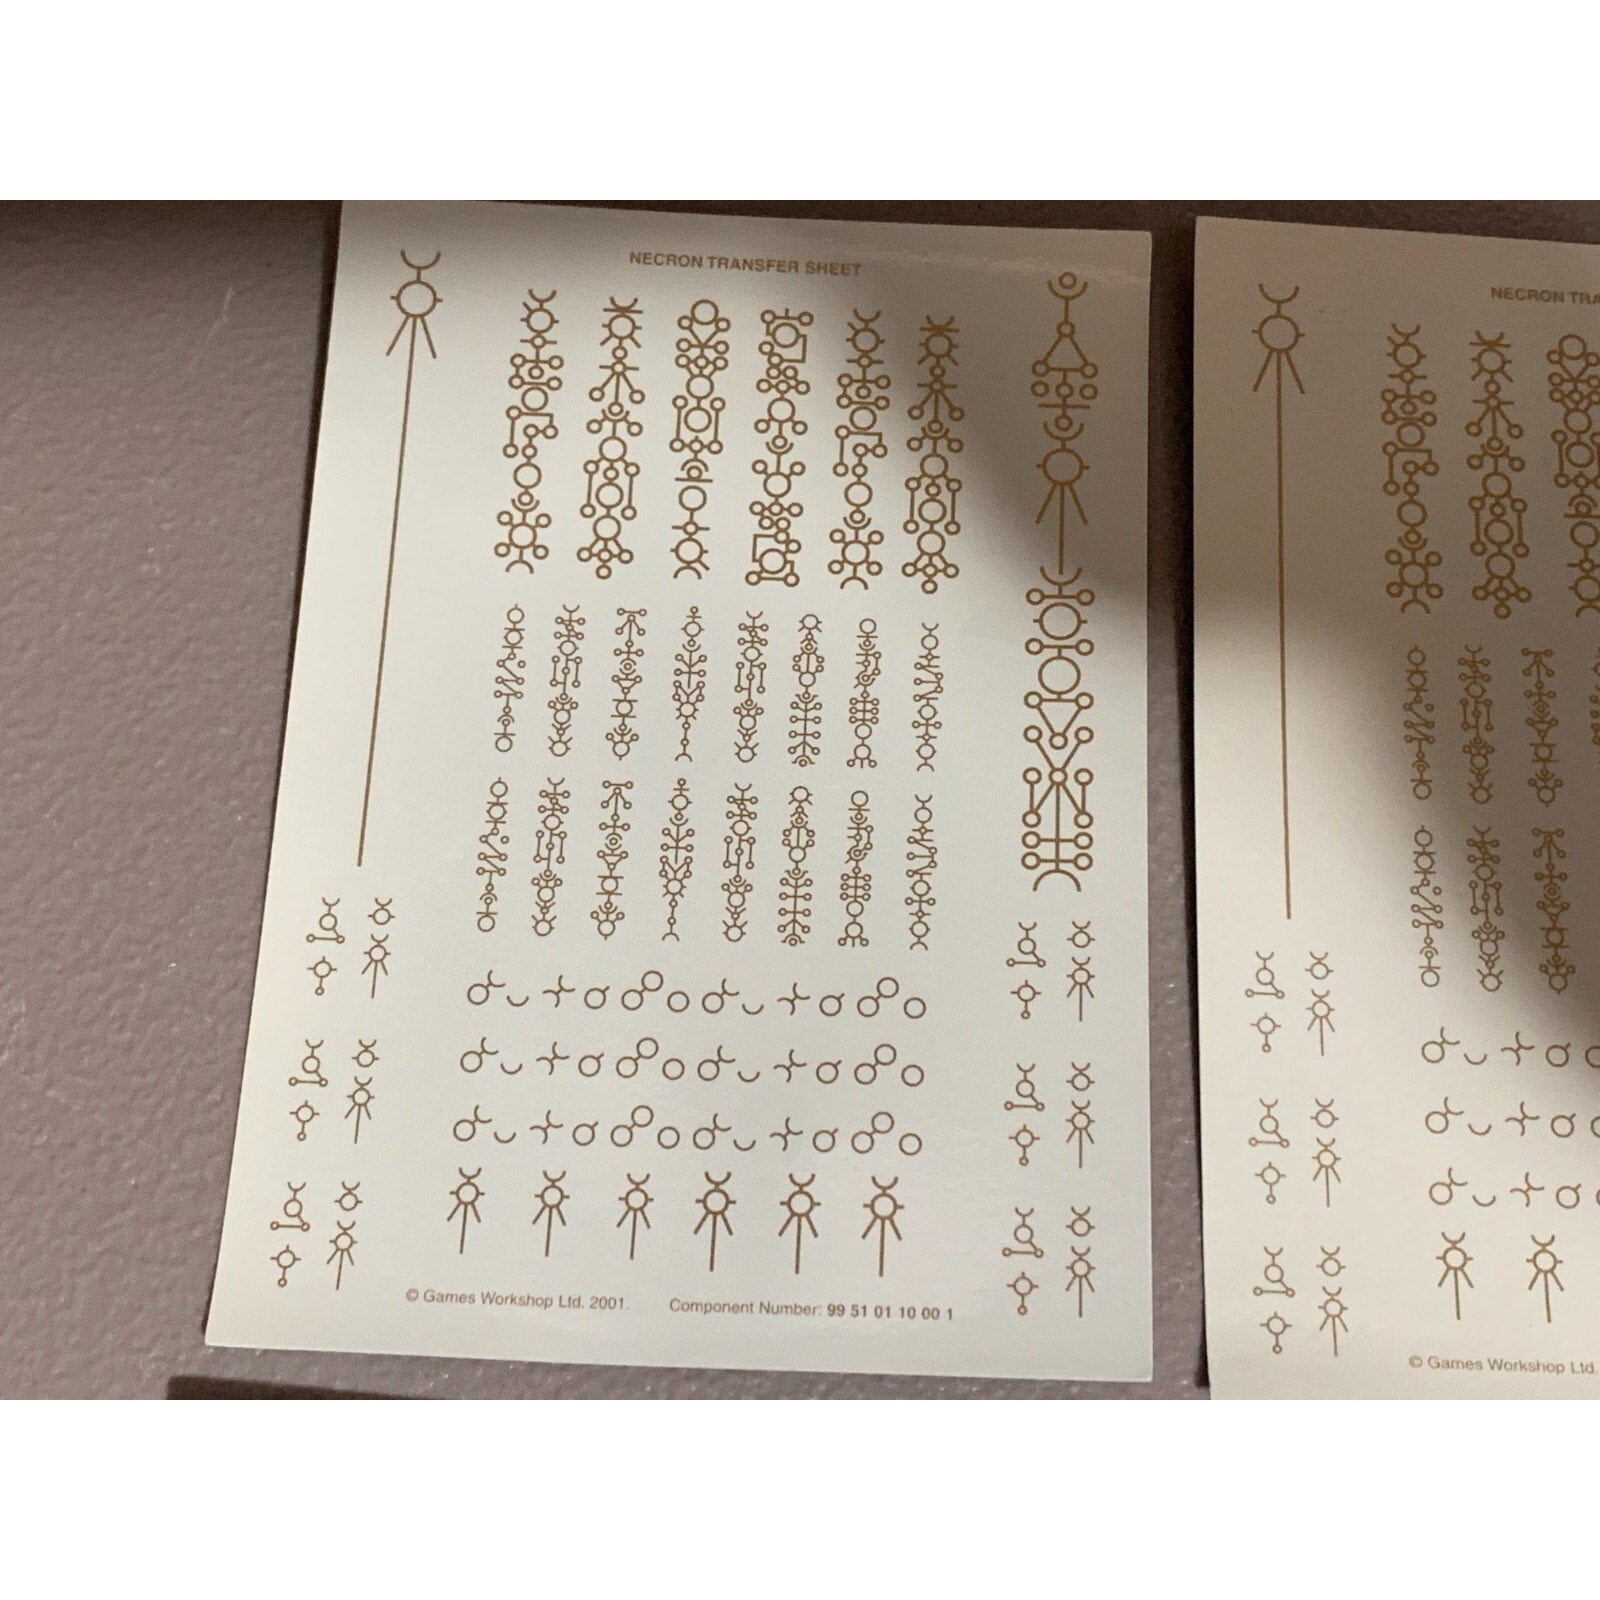 NECRON TRANSFER SHEET
© Games Workshop Ltd. 2001. Component Number: 99 51 01 10 00 1
NECRON TRA
© Games Workshop Ltd.